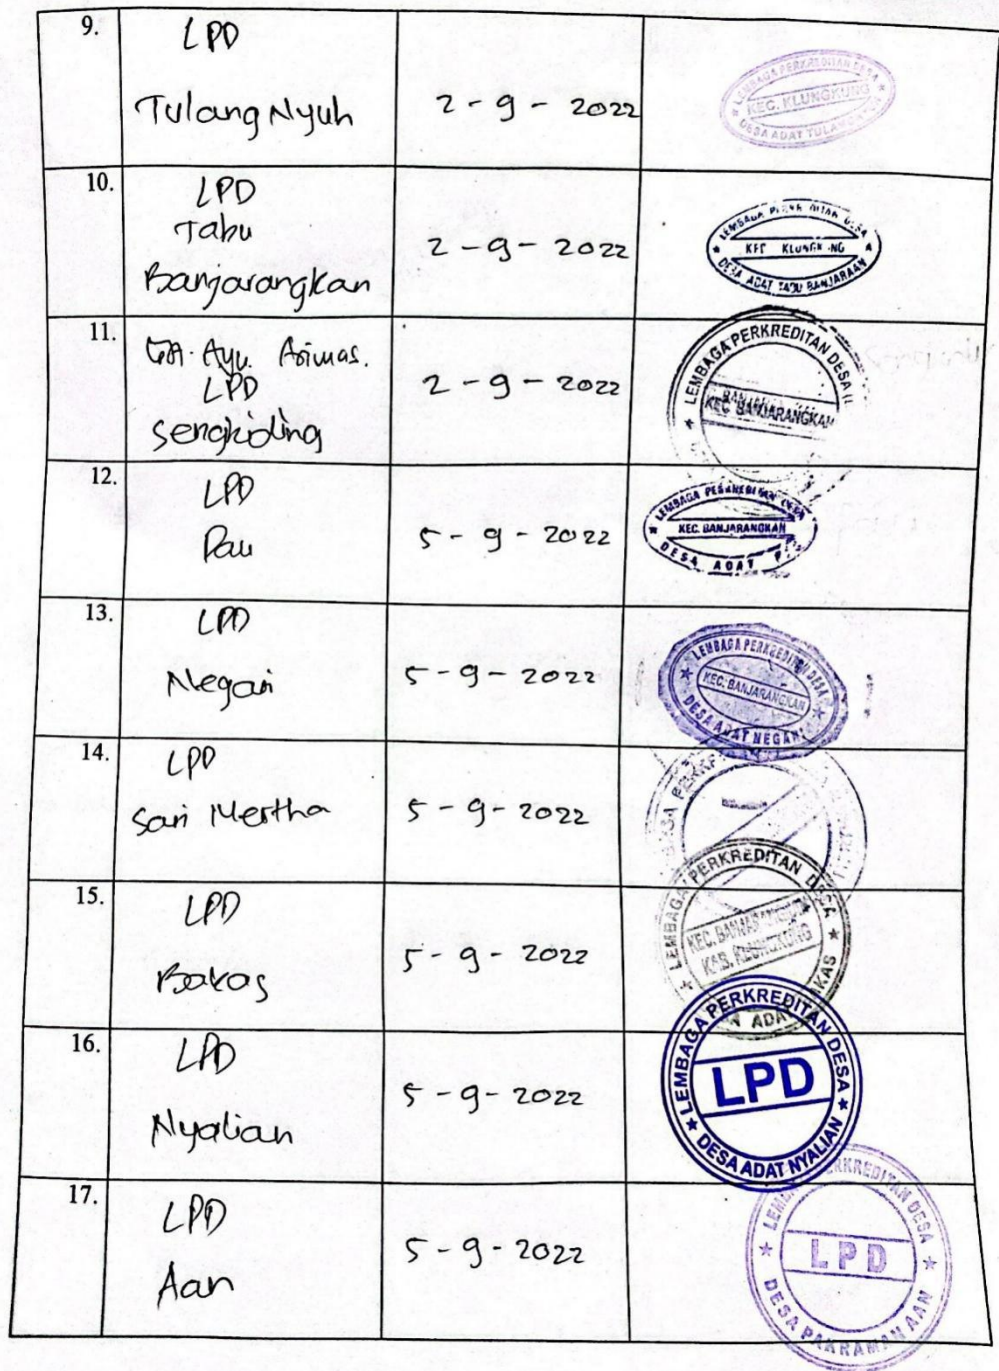 9.
LPD
Tulang Nyuh
2 - 9 - 2022
LEMBAGA PERKREDITAN DESA
KEC. KLUNGKUNG
DESA ADAT
10.
LPD
Tabu
Banjarangkan
2 - 9 - 2022
LEMBAGA DESA
DESA ADAT TABU
11.
Ayu.
LPD
Sengkiding
2 - 9 - 2022
LEMBAGA PERKREDITAN DESA
KEC BANJARANGKAN
12.
LPD
Pau
5 - 9 - 2022
LEMBAGA PERKREDITAN DESA
KEC. BANJARANGKAN
DESA ADAT
13.
LPD
Negari
5 - 9 - 2022
LEMBAGA PERKREDITAN DESA
KEC. BANJARANGKAN
DESA ADAT NEGARI
14.
LPD
Sari Mertha
5 - 9 - 2022
15.
LPD
Bakas
5 - 9 - 2022
LEMBAGA PERKREDITAN DESA
KEC. BANJARANGKAN
KAB. KLUNGKUNG
16.
LPD
Nyalian
5 - 9 - 2022
LEMBAGA PERKREDITAN DESA
LPD
DESA ADAT NYALIAN
17.
LPD
Aan
5 - 9 - 2022
PERKREDITAN DESA
LPD
DESA PAKRAMAN AAN